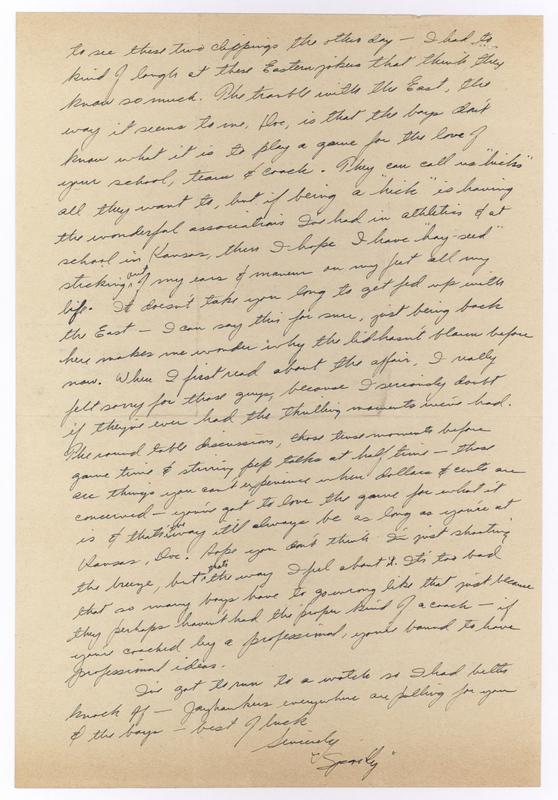 to see these two clippings the other day — I had to
kind of laugh at those Eastern jokers that think they
know so much. The trouble with the East, the
way it seems to me, Doc, is that the boys don't
know what it is to play a game for the love of
your school, team & coach. They can call us "hicks"
all they want to, but if being a "hick" is having
the wonderful associations I've had in athletics & at
school in Kansas, then I hope I have "hay-seed"
sticking out of my ears & manure on my feet all my
life. It doesn't take you long to get fed up with
the East — I can say this for sure, just being back
here makes me wonder why the lid hasn't blown before
now. When I first read about the affair, I really
felt sorry for those guys, because I seriously doubt
if they've ever had the thrilling moments we've had.
The round table discussions, those tense moments before
game time & stirring pep talks at half time — those
are things you can't experience when dollars & cents are
concerned — you've got to love the game for what it
is & that's the way it'll always be as long as you're at
Kansas, Doc. Hope you don't think I'm just shooting
the breeze, but that's the way I feel about it. It's too bad
that so many boys have to go wrong like that just because
they perhaps haven't had the proper kind of a coach — if
you're coached by a professional, you're bound to have
professional ideas.
I've got to run to a watch so I had better
knock off — Jayhawkers everywhere are pulling for you
& the boys — best of luck
Sincerely
"Sparky"